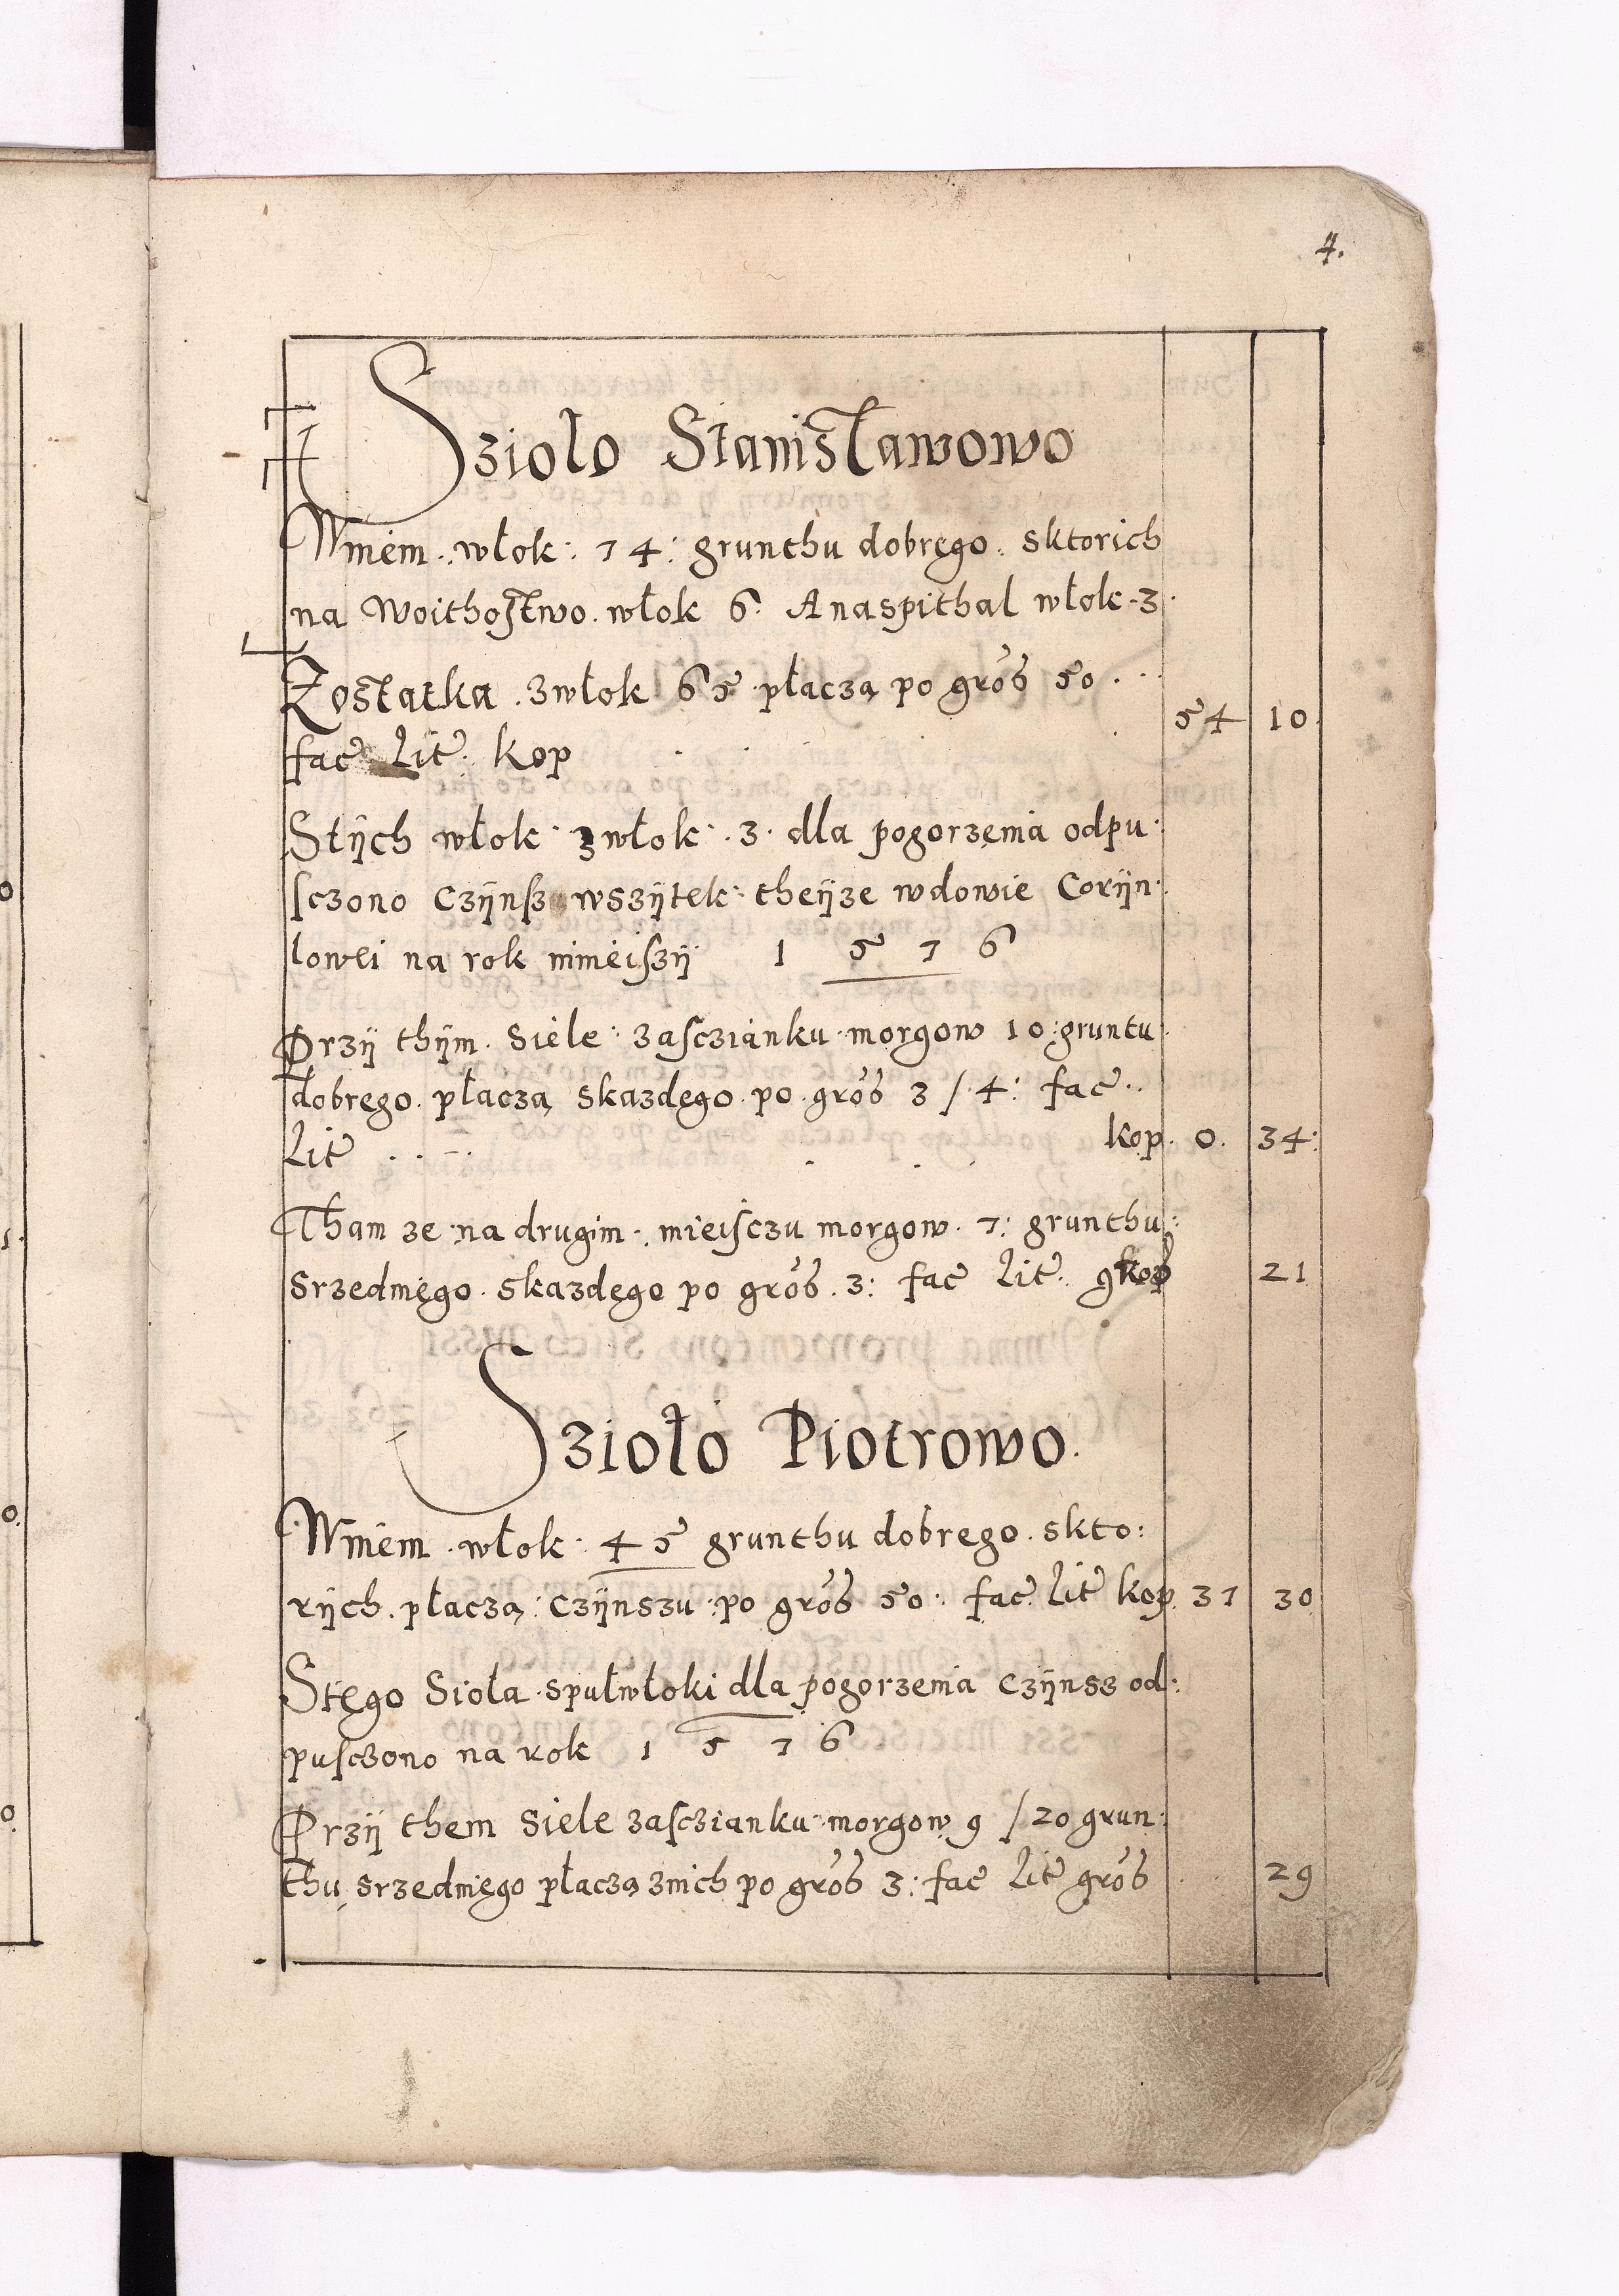 4.
Szioło Stanisławowo
Wniem. włok: 74: grunthu dobręgo. sktorich
na Woithostwo. włok 6. Anaspithal włok. 3.
Zostatka. zwłok 65 płaczą po gros 50 . . .
fac Lit. kop . . . 54 10
Stÿch włok: zwłok. 3. dla pogorzęnia odpu:
sczono Czÿnsz wszÿtek: theÿze wdowie Corÿn:
lowei na rok ninieiszÿ 1 5 7 6
Przÿ thÿm. siele: zasczianku morgow 10: gruntu
dobręgo. płaczą skazdęgo. po. gros 3 / 4: fac..
Lit . . . . kop. 0. 34:
Tham ze na drugim. mieisczu morgow. 7: grunthu:
srzedniego. skazdęgo po gros. 3: fac Lit. 21
Szioło Piotrowo.
Wniem. włok: 45 grunthu dobrego. skto:
rÿch. płaczą: czÿnszu: po gros 50: fac Lit kop 37 30
Stęgo Sioła spułwłoki dla pogorzenia czÿnsz od:
pusczono na rok 1 5 7 6
Przÿ them siele zasczianku morgow 9 / 20 grun:
thu srzedniego płaczą znich po gros 3: fac Lit gros 29